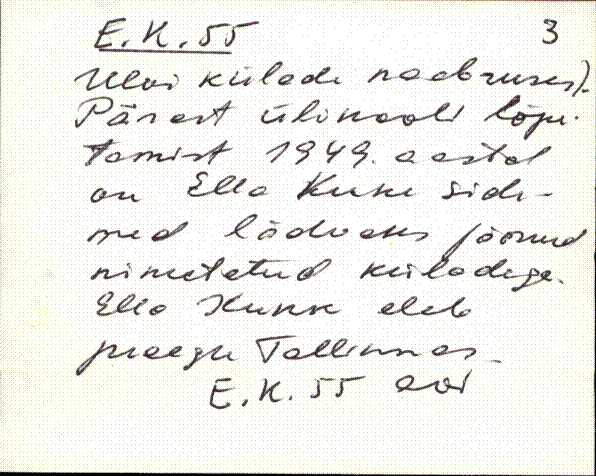 E.K.55 3
Ulvi külade naabruses).
Pärast ülikooli lõpe-
tamist 1949. aastal
on Ella Kukk side-
med lõdvaks jäänud
nimetatud küladega.
Ella Kukk elab
praegu Tallinnas.
E.K.55